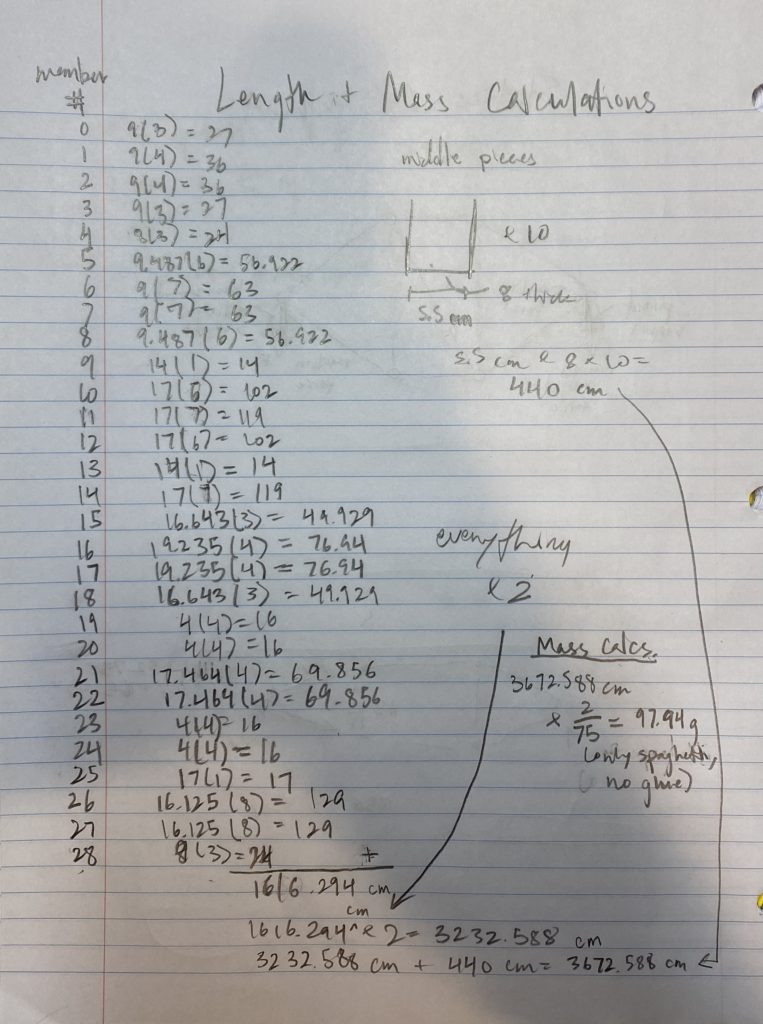 member
#
Length + Mass Calculations
0 9(3) = 27
1 9(4) = 36
2 9(4) = 36
3 9(3) = 27
4 8(3) = 24
5 9.487(6) = 56.922
6 9(7) = 63
7 9(7) = 63
8 9.487(6) = 56.922
9 14(1) = 14
10 17(6) = 102
11 17(7) = 119
12 17(6) = 102
13 14(1) = 14
14 17(7) = 119
15 16.643(3) = 49.929
16 19.235(4) = 76.94
17 19.235(4) = 76.94
18 16.643(3) = 49.929
19 4(4) = 16
20 4(4) = 16
21 17.464(4) = 69.856
22 17.464(4) = 69.856
23 4(4) = 16
24 4(4) = 16
25 17(1) = 17
26 16.125(8) = 129
27 16.125(8) = 129
28 8(3) = 24 +
1616.294 cm
cm
1616.294^ x 2 = 3232.588 cm
3232.588 cm + 440 cm = 3672.588 cm
middle pieces
x 10
8 thick
5.5 cm
5.5 cm x 8 x 10 =
440 cm
everything
x 2
Mass Calcs.
3672.588 cm
x 2/75 = 97.94 g
(only spaghetti,
no glue)